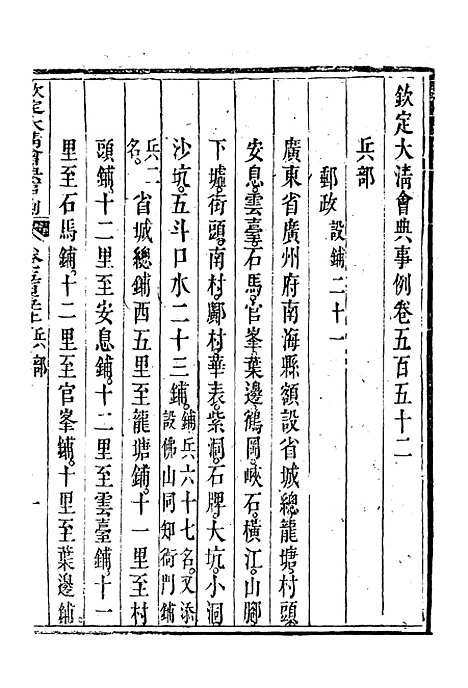 欽定大清會典事例卷五百五十二
兵部
郵政 設鋪二十一
廣東省廣州府南海縣額設省城總龍塘村頭
安息雲臺石馬官峯葉邊鶴岡峽石橫江山腳
下墟街頭南村鄺村華表紫洞石牌大坑小洞
沙坑五斗口水二十三鋪鋪兵六十七名又添
設佛山同知衙門鋪
兵二
名 省城總鋪西五里至龍塘鋪十一里至村
頭鋪十二里至安息鋪十二里至雲臺鋪十一
里至石馬鋪十二里至官峯鋪十里至葉邊鋪
欽定大清會典事例 兵部 一